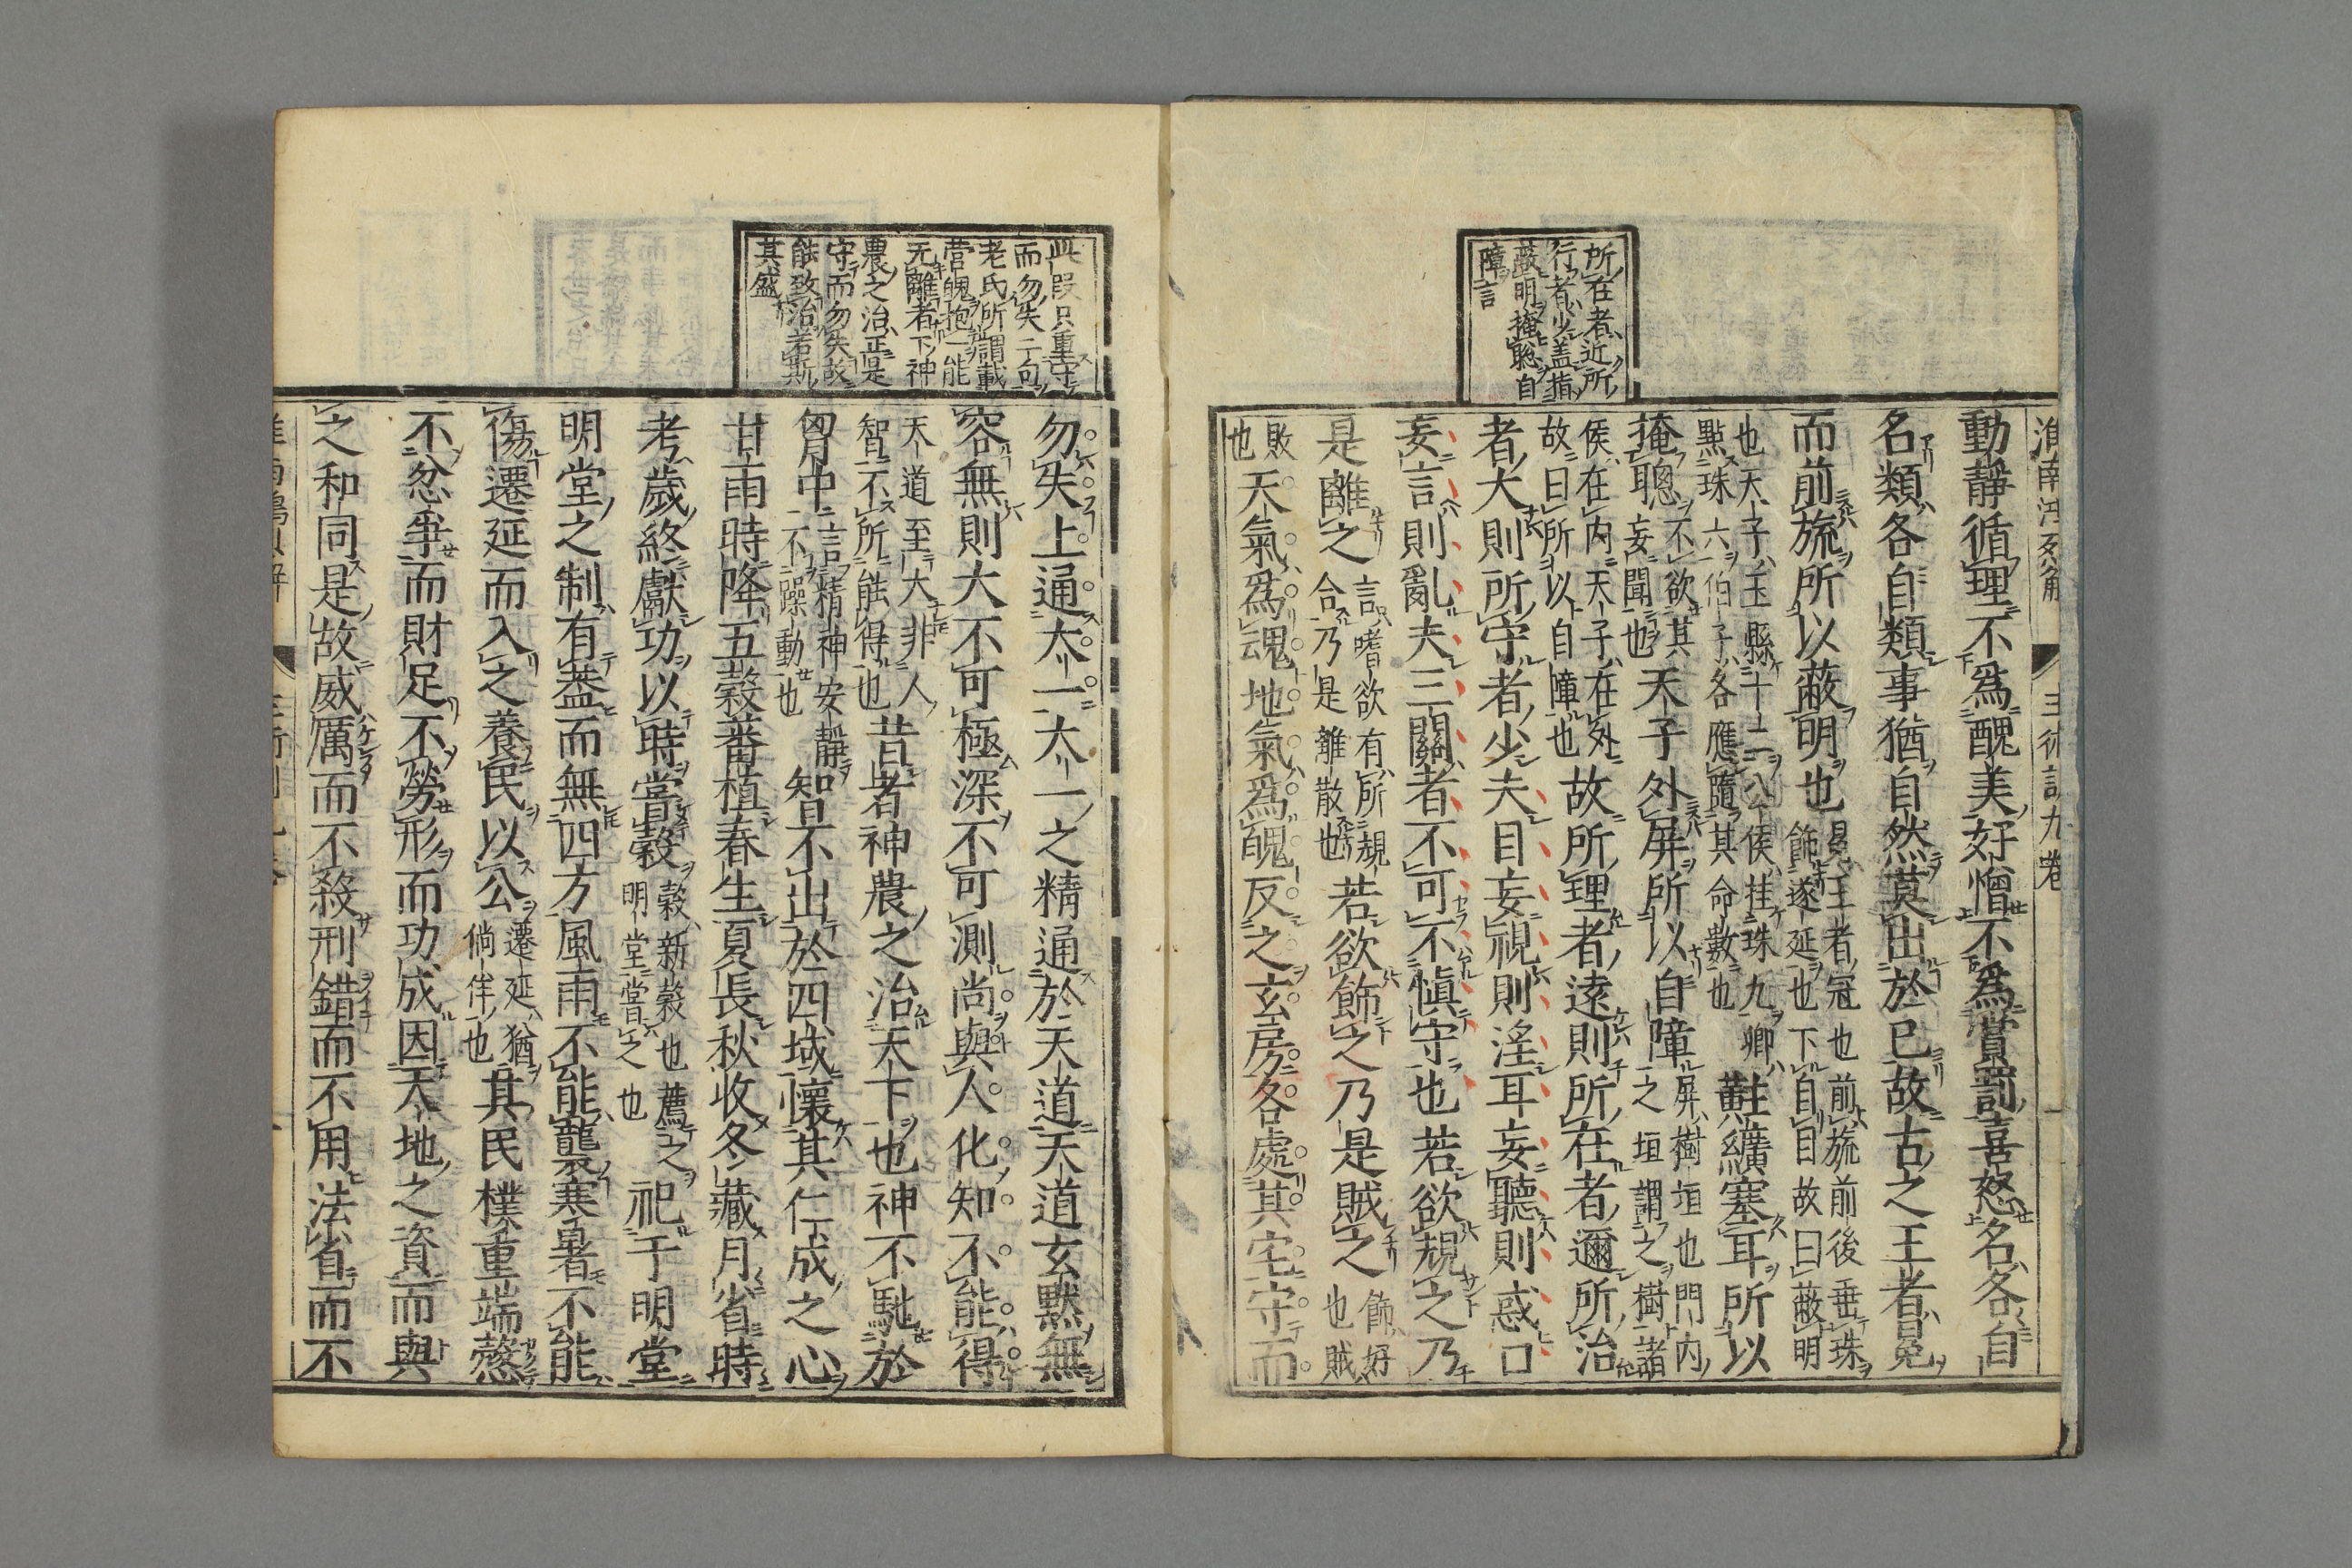 動靜循理不爲醜美好憎不爲賞罰喜怒名各自
名類各自類事猶自然莫出於已故古之王者冕
而前旒所以蔽明也冕王者冠也前旒前後垂珠
飾遂延也下自目故曰蔽明
也天子玉縣十二公侯挂珠九卿
點珠六伯子各應隨其命數也
黈纊塞耳所以
掩聰不欲其
妄聞也
天子外屏所以自障屏樹垣也門内
之垣謂之樹諸
侯在内天子在外
故曰所以自障也
故所理者遠則所在者邇所治
者大則所守者少夫目妄視則淫耳妄聽則惑口
妄言則亂夫三關者不可不慎守也若欲規之乃
是離之言嗜欲有所規
合乃是離散也
若欲飾之乃是賊之飾好
也賊
敗
也
天氣爲魂地氣爲魄反之玄房各處其宅守而
所在者近所
行者少盖指
蔽明掩聡自
障言
勿失上通太一太一之精通於天道天道玄默無
容無則大不可極深不可測尚與人化知不能得
天道至大非人
智不所能得也
昔者神農之治天下也神不馳於
匈中言精神安靜
不躁動也
智不出於四域懷其仁成之心
甘雨時降五穀蕃植春生夏長秋收冬藏月省時
考歲終獻功以時嘗穀穀新穀也薦之
明堂嘗之也
祀于明堂
明堂之制有葢而無四方風雨不能襲寒暑不能
傷遷延而入之養民以公遷延猶
倘佯也
其民樸重端慤
不忿争而財足不勞形而功成因天地之資而與
之和同是故威厲而不殺刑錯而不用法省而不
此段只重守
而勿失二句
老氏所謂載
營魄抱一能
无離者下神
農之治正是
守而勿失故
能致治若斯
其盛